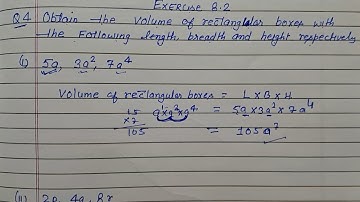 EXERCISE 8.2
Q4 Obtain the volume of rectangular boxes with
the following length, breadth and height respectively
(i) 5a, 3a², 7a⁴
Volume of rectangular boxes = L×B×H
15 a¹×a²×a⁴ = 5a×3a²×7a⁴
×7
105 = 105a⁷
(ii) 2p, 4q, 8r